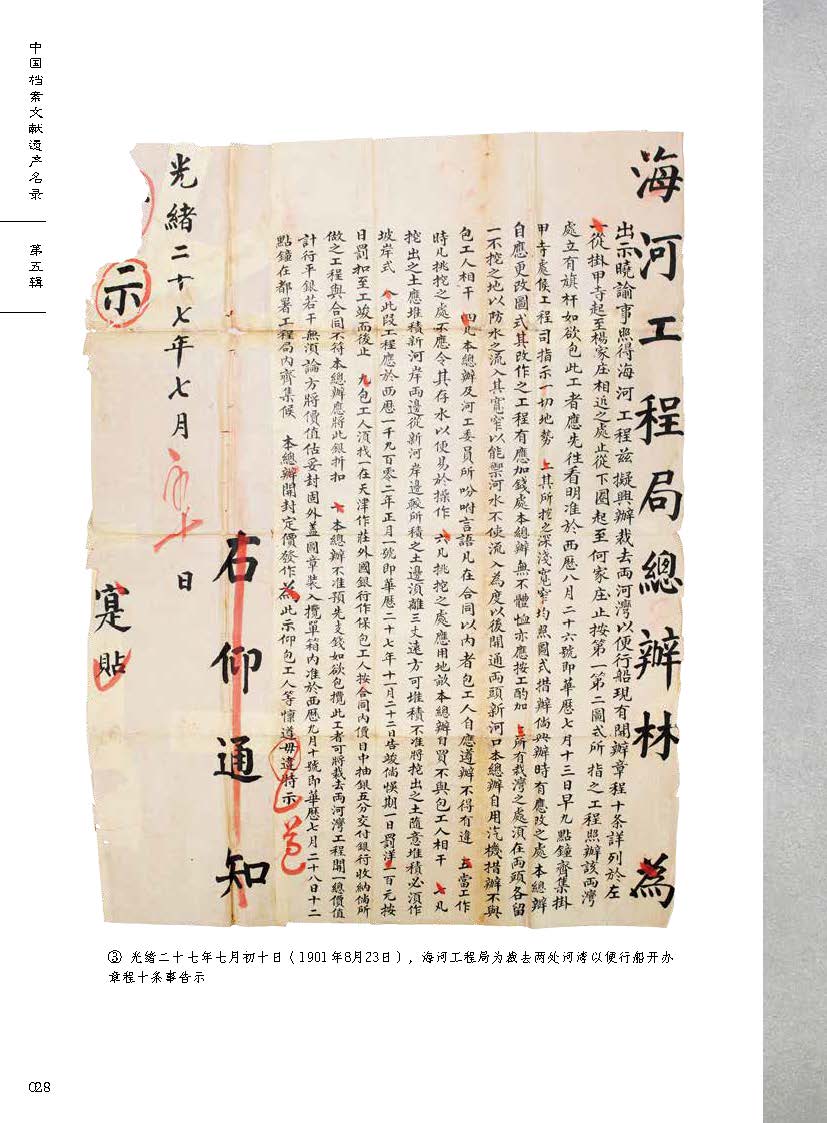 中国档案文献遗产名录
第五辑
海河工程局總辦林 為
出示曉諭事照得海河工程茲擬興辦裁去兩河灣以便行船現有開辦章程十条詳列於左
一從掛甲寺起至楊家庄相近之處止從下圈起至何家庄止按第一第二圖式所指之工程照辦該兩灣
處立有旗杆如欲包此工者應先往看明准於西歷八月二十六號即華歷七月十三日早九點鐘齊集掛
甲寺處候工程司指示一切地勢 二其所挖之深淺寬窄均照圖式措辦倘興辦時有應改之處本總辦
自應更改圖式其改作之工程有應加錢處本總辦無不體恤亦應按工酌加 三所有裁灣之處須在兩頭各留
一不挖之地以防水之流入其寬窄以能禦河水不使流入為度以後開通兩頭新河口本總辦自用汽機措辦不與
包工人相干 四凡本總辦及河工委員所吩咐言語凡在合同以內者包工人自應遵辦不得有違 五當工作
時凡挑挖之處不應令其存水以便易於操作 六凡挑挖之處應用地畝本總辦自買不與包工人相干 七凡
挖出之土應堆積新河岸兩邊從新河岸邊較所積之土邊須離三丈遠方可堆積不准將挖出之土隨意堆積必須作
坡岸式 八此段工程應於西歷一千九百零二年正月一號即華歷二十七年十一月二十二日告竣倘悞期一日罰洋一百元按
日罰扣至工竣而後止 九包工人須找一在天津作莊外國銀行作保包工人按合同內價目中抽銀五分交付銀行收納倘所
做之工程與合同不符本總辦應將此銀折扣 十本總辦不准預先支錢如欲包攬此工者可將裁去兩河灣工程開一總價值
計行平銀若干無須論方將價值估妥封固外蓋圖章裝入攬單箱內准於西歷九月十號即華歷七月二十八日十二
點鐘在都署工程局內齊集候 本總辦開封定價發作為此示仰包工人等懍遵毋違特示
右仰通知
光緒二十七年七月初十日
示
寔貼
③ 光绪二十七年七月初十日（1901年8月23日），海河工程局为裁去两处河湾以便行船开办
章程十条事告示
028